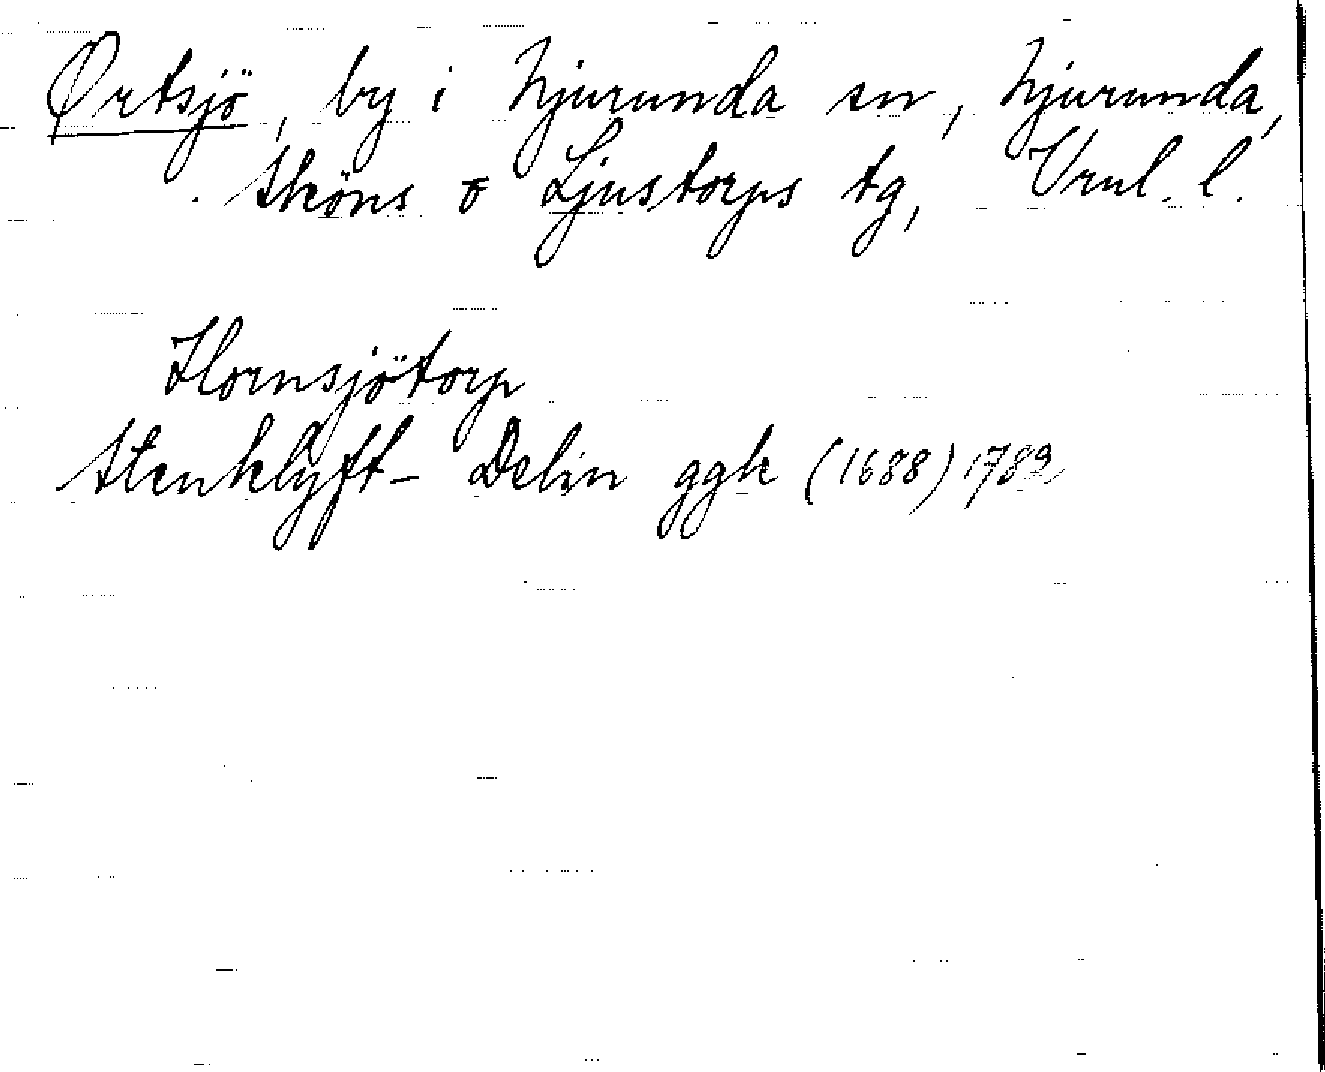 Ortsjö, by i Njurunda sn, Njurunda,
Sköns o Ljustorps tg, Vnl. l.
Hornsjötorp
Stenklyft- Delin ggk (1688) 1789